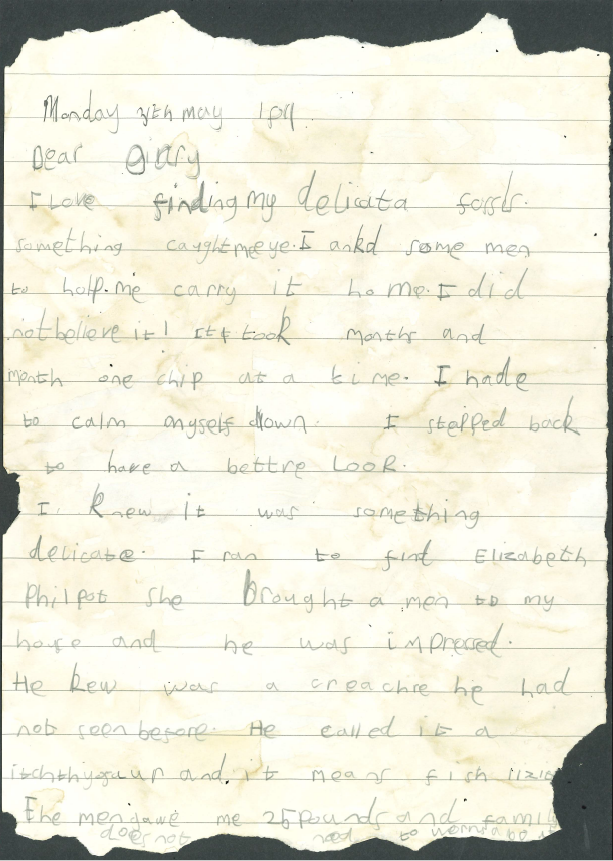 Monday 7th may 1811
Dear giary
I Love finding my delicata
something caught me eye. I ankd some men
to halp. me carry it home. I did
not believe it! It took months and
month one chip at a time. I hade
to calm myself down. I stepped back
to have a bettre Look.
I knew it was something
delicate. I ran to find Elizabeth
Philpot she brought a men to my
house and he was impressed.
He kew was a creachre he had
not seen before. He called it a
and it means fish
The men gave me 25 pounds and family
does not need to